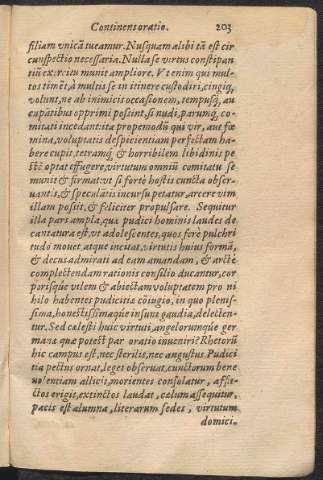 Continens oratio. 203
filiam vnicā tueamur. Nusquam alibi tā est cir
cunspectio necessaria. Nulla se virtus constipan
tiū exercitu munit ampliore. Vt enim qui mul-
tos timēt, à multis se in itinere custodiri, cingiq́;
volunt, ne ab inimicis occasionem, tempusq́; au
cupātibus opprimi possint, si nudi, parumq́; co-
mitati incedant: ita propemodū qui vir, aut fœ
mina, voluptatis despicientiam perfectam ha-
bere cupit, tetramq́; & horribilem libidinis pe
stē optat effugere, virtutum omniū comitatu se
munit & firmat: vt si fortè hostis cuncta obser-
uantis, & speculātis incursu petatur, arcere vim
illam possit, & feliciter propulsare. Sequitur
illa pars ampla, qua pudici hominis laudes de
cantatura est, vt adolescentes, quos ferè pulchri
tudo mouet atque incitat, virtutis huius formā,
& decus admirati ad eam amandam, & arctè
complectendam rationis consilio ducantur, cor
porisque vilem & abiectam voluptatem pro ni
hilo habentes pudicitiæ cōiugio, in quo plenis-
sima, honestissimaque insunt gaudia, delecten-
tur. Sed cælesti huic virtuti, angelorumque ger
manæ quæ potest par oratio inueniri? Rhetorū
hic campus est, nec sterilis, nec angustus. Pudici
tia pectus ornat, leget obseruat, cunctorum bene
uolentiam allicit, morientes consolatur, affli-
ctos erigit, extinctos laudat, cælum assequitur,
pacis est alumna, literarum sedes, virtutum
domici-